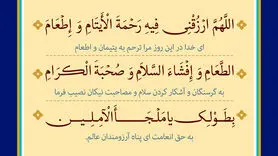 اللَّهُمَّ ارْزُقْنِي فِيهِ رَحْمَةَ الْأَيْتَامِ وَ إِطْعَامَ
ای خدا در این روز مرا ترحم به یتیمان و اطعام
الطَّعَامِ وَ إِفْشَاءَ السَّلَامِ وَ صُحْبَةَ الْكِرَامِ
به گرسنگان و آشکار کردن سلام و مصاحبت نیکان نصیب فرما
بِطَوْلِكَ يَا مَلْجَأَ الْآمِلِينَ
به حق انعامت ای پناه آرزومندان عالم.